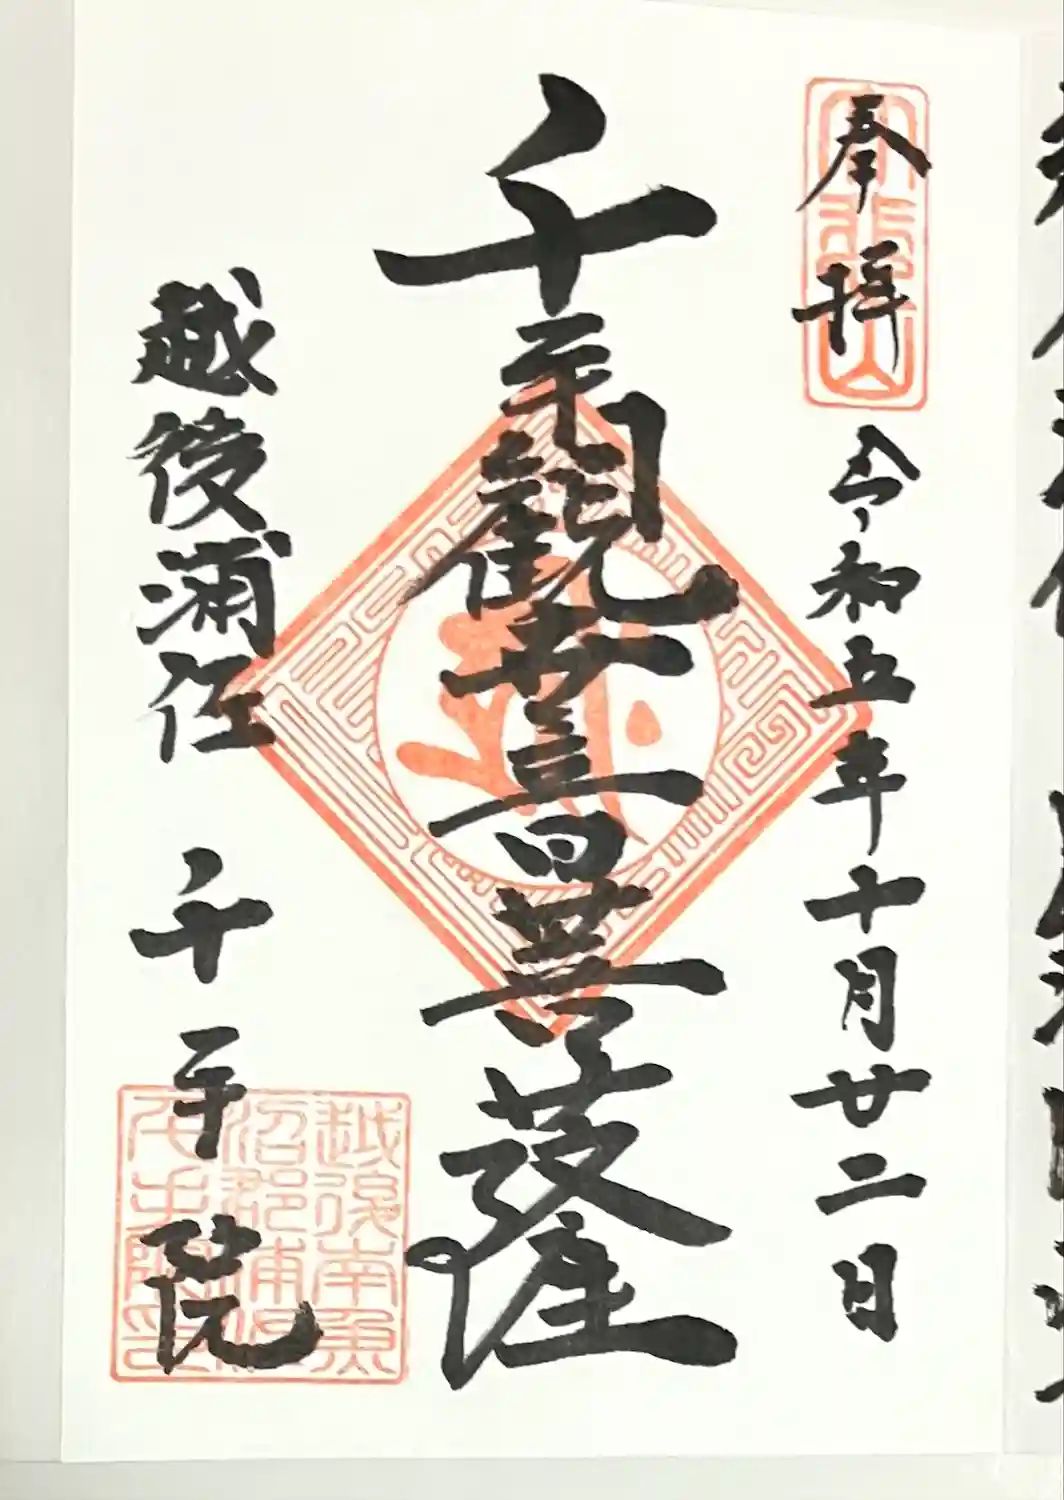 奉拝 令和五年十月廿二日
千手觀世音菩薩
越後浦佐 千手院
越後南魚
沼郡浦佐
千手院印